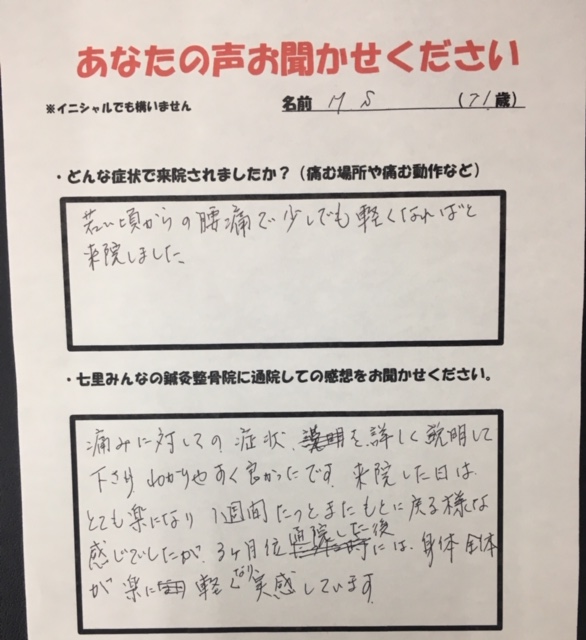 あなたの声お聞かせください
※イニシャルでも構いません 名前 M S (71歳)
・どんな症状で来院されましたか?(痛む場所や痛む動作など)
若い頃からの腰痛で少しでも軽くなればと
来院しました。
・七里みんなの鍼灸整骨院に通院しての感想をお聞かせください。
痛みに対しての症状、を詳しく説明して
下さり わかりやすく良かったです。来院した日は
とても楽になり 1週間たつとまたもとに戻る様な
感じでしたが、3ヶ月位通院した後には、身体全体
が楽に軽くなり、実感しています。